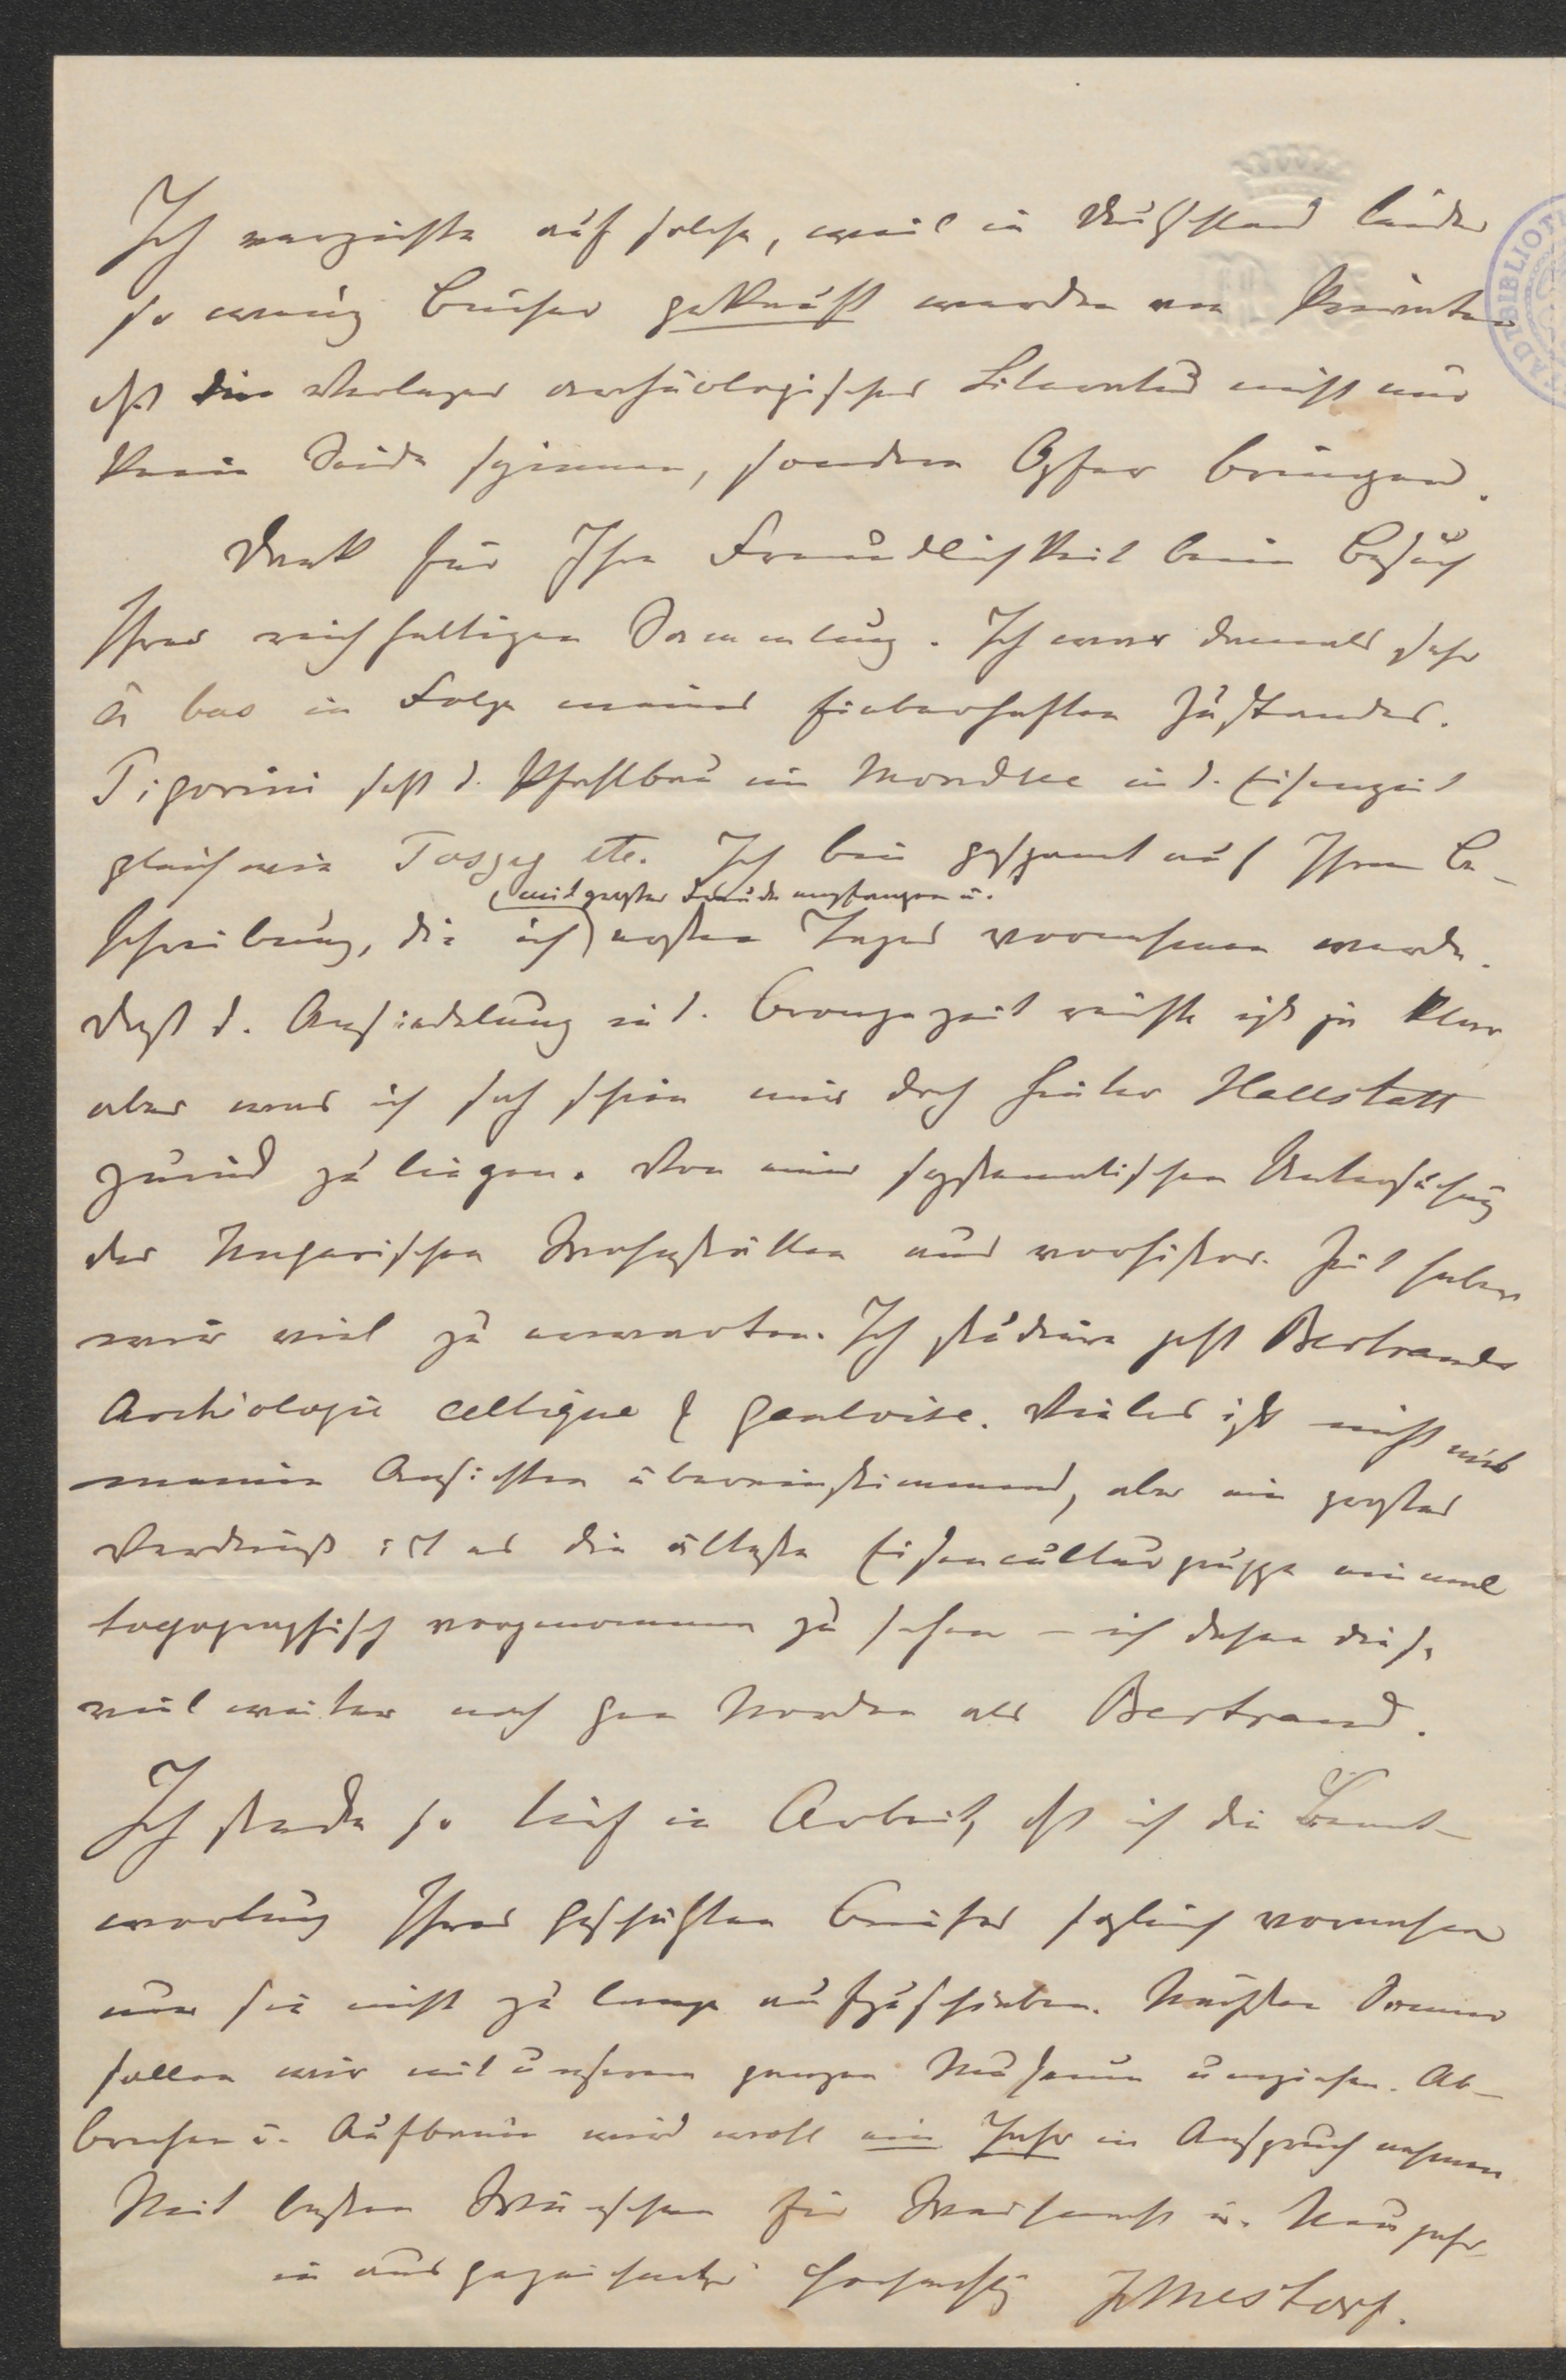 Ich verzichte auf solche, weil in Deutschland leider
so wenig Bücher gekauft werden von Privaten
dß die Verleger archäologischer Literatur nicht nur
keine Seide spinnen, sondern Opfer bringen.
Dank für Ihre Freundlichkeit beim Besuch
Ihrer reichhaltigen Sammlung. Ich war damals sehr
à bas in Folge meines fieberhaften Zustandes.
Pigorini setzt d. Pfahlbau im Mondsee in d. Eisenzeit
gleich wie Toszeg etc. Ich bin gespannt auf Ihre Be-
(mit großer Freude empfangen u.
schreibung, die ich) ersten Tages vornehmen werde.
Daß d. Ansiedelung in d. Bronzezeit reichte ist ja klar
aber was ich sah schien mir doch hinter Hallstatt
zurück zu liegen. Von einer systematischen Untersuchung
der Ungarischen Wohnstätten aus vorhistor. Zeit haben
wir viel zu erwarten. Ich studiere jetzt Bertrands
Archéologie celtique & gauloise. Vieles ist nicht mit
meinen Ansichten übereinstimmend, aber ein großes
Verdienst ist es die älteste Eisenculturgruppe einmal
topographisch vorgenommen zu sehen – ich dehne diese
viel weiter nach gen Norden als Bertrand.
Ich stecke so tief in Arbeit, dß ich die Beant-
wortung Ihres geschätzten Briefes sogleich vornehme
um sie nicht zu lange aufzuschieben. Nächsten Sommer
sollen wir mit unserem ganzen Museum umziehen. Ab-
brechen u. Aufbauen wird wohl ein Jahr in Anspruch nehmen
Mit besten Wünschen für Weihnacht u. Neujahr
in ausgezeichneter Hochachtg
J Mestorf.